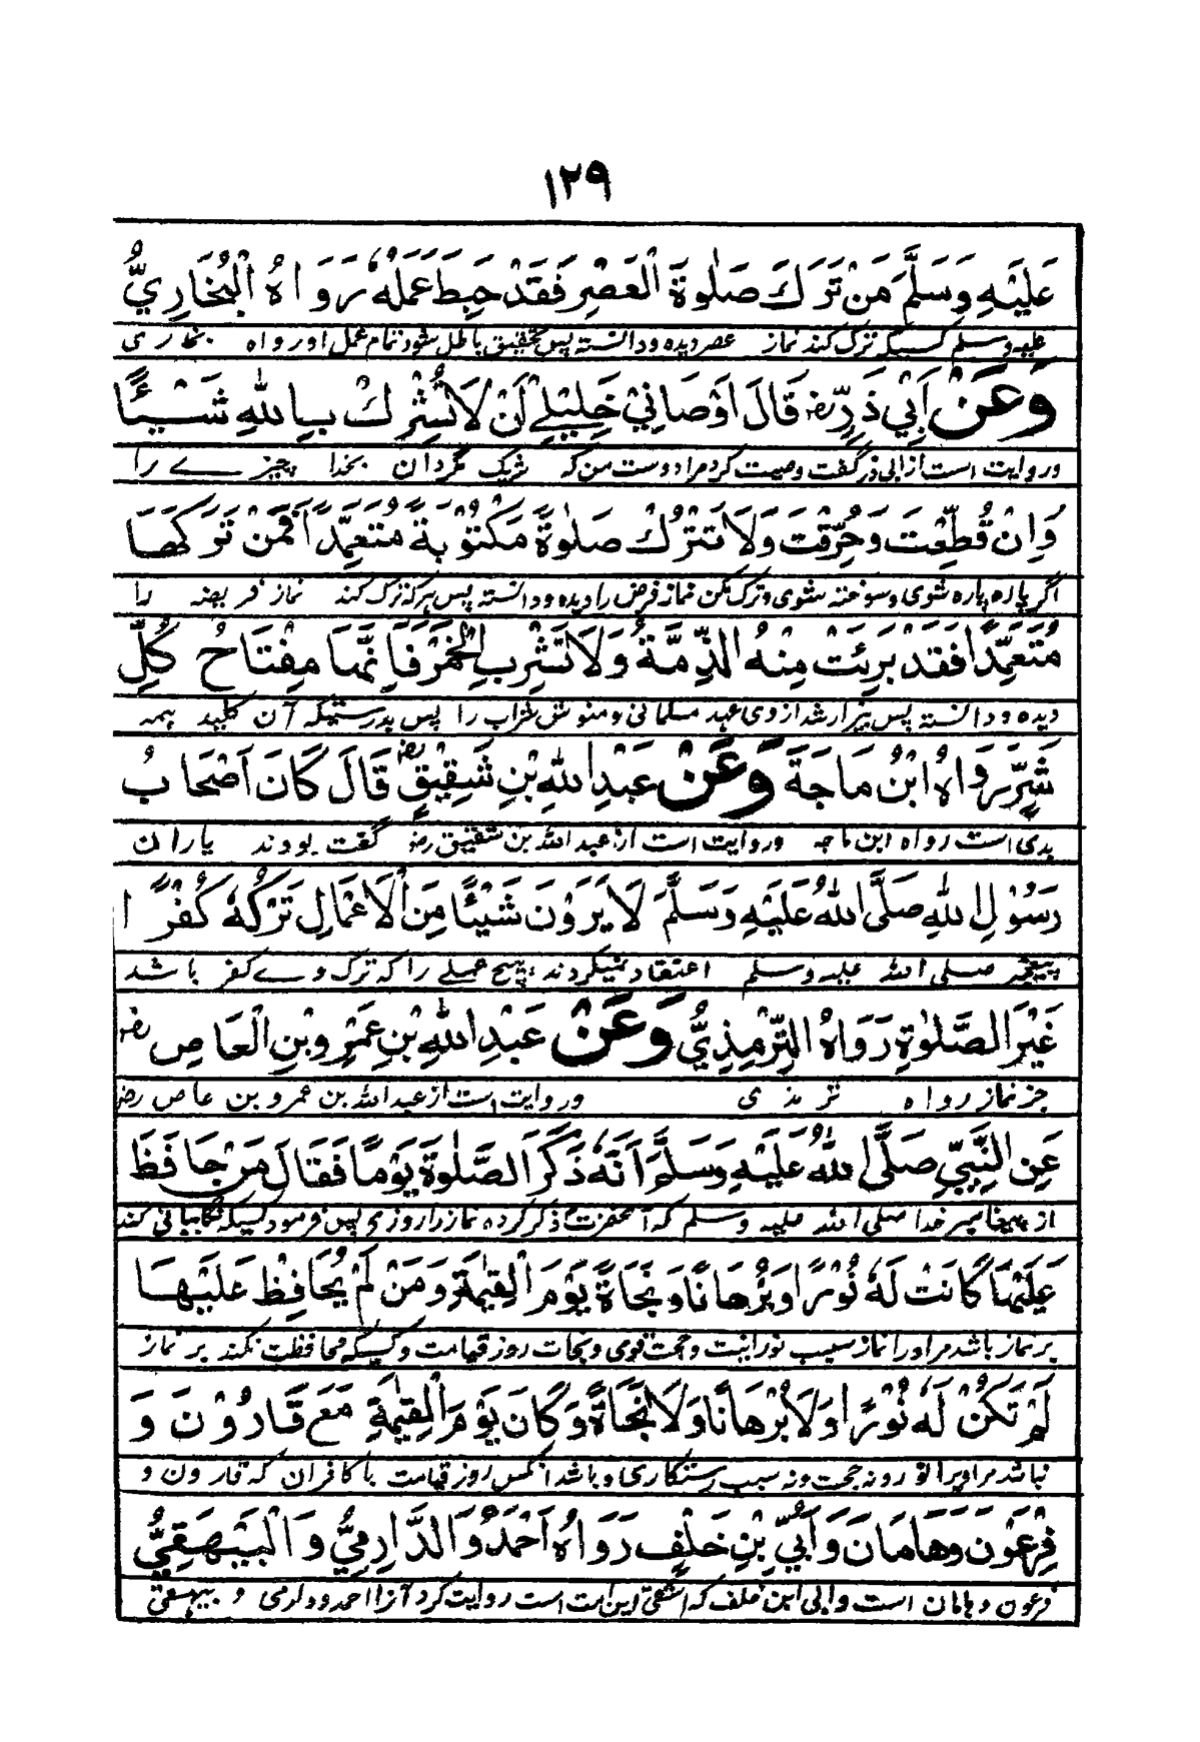 ١٢٩
عَلَيْهِ وَسَلَّمَ مَنْ تَرَكَ صَلٰوةَ الْعَصْرِ فَقَدْ حَبِطَ عَمَلُهٗ رَوَاهُ الْبُخَارِيُّ
علیه وسلم کسیکه ترک کند نماز عصر دیده و دانسته پس تحقیق باطل شود تمام عمل او رواه بخاری
وَعَنْ اَبِيْ ذَرٍّ رض قَالَ اَوْصَانِيْ خَلِيْلِيْ اَنْ لَا تُشْرِكْ بِاللّٰهِ شَيْـًٔا
و روایت است از ابی ذر گفت وصیت کرد مرا دوست من که شریک مگردان بخدا چیزے را
وَاِنْ قُطِّعْتَ وَحُرِّقْتَ وَلَا تَتْرُكْ صَلٰوةً مَكْتُوْبَةً مُتَعَمِّدًا فَمَنْ تَرَكَهَا
اگر پاره پاره شوی و سوخته شوی و ترک مکن نماز فرض را دیده و دانسته پس هرکه ترک کند نماز فریضه را
مُتَعَمِّدًا فَقَدْ بَرِئَتْ مِنْهُ الذِّمَّةُ وَلَا تَشْرِبِ الْخَمْرَ فَاِنَّهَا مِفْتَاحُ كُلِّ
دیده و دانسته پس بیزار شد از وی عهد مسلمانی و منوش شراب را پس بدرستیکه آن کلید همه
شَرٍّ رَوَاهُ ابْنُ مَاجَةَ وَعَنْ عَبْدِ اللّٰهِ بْنِ شَقِيْقٍ رض قَالَ كَانَ اَصْحَابُ
بدی است رواه ابن ماجه و روایت است از عبد الله بن شقیق رض گفت بودند یاران
رَسُوْلِ اللّٰهِ صَلَّى اللّٰهُ عَلَيْهِ وَسَلَّمَ لَا يَرَوْنَ شَيْئًا مِنَ الْاَعْمَالِ تَرْكُهٗ كُفْرًا
پیغمبر صلی الله علیه وسلم اعتقاد نمیکردند هیچ عملے را که ترک وے کفر باشد
غَيْرَ الصَّلٰوةِ رَوَاهُ التِّرْمِذِيُّ وَعَنْ عَبْدِ اللّٰهِ بْنِ عَمْرِو بْنِ الْعَاصِ رض
جز نماز رواه ترمذی و روایت است از عبد الله بن عمرو بن عاص رض
عَنِ النَّبِيِّ صَلَّى اللّٰهُ عَلَيْهِ وَسَلَّمَ اَنَّهٗ ذَكَرَ الصَّلٰوةَ يَوْمًا فَقَالَ مَنْ حَافَظَ
از پیغامبر خدا صلی الله علیه وسلم که آنحضرت ذکر کرده نماز را روزی پس فرمود کسیکه نگاهبانی کند
عَلَيْهَا كَانَتْ لَهٗ نُوْرًا وَبُرْهَانًا وَنَجَاةً يَوْمَ الْقِيٰمَةِ وَمَنْ لَمْ يُحَافِظْ عَلَيْهَا
بر نماز باشد مر او را نماز سبب نورانیت و حجت قوی و نجات روز قیامت و کسیکه محافظت نکند بر نماز
لَمْ تَكُنْ لَهٗ نُوْرًا وَلَا بُرْهَانًا وَلَا نَجَاةً وَكَانَ يَوْمَ الْقِيٰمَةِ مَعَ قَارُوْنَ وَ
نباشد مر او را نور و نه حجت و نه سبب رستگاری و باشد آنکس روز قیامت با کافران که قارون و
فِرْعَوْنَ وَهَامَانَ وَاُبَيِّ بْنِ خَلْفٍ رَوَاهُ اَحْمَدُ وَالدَّارِمِيُّ وَالْبَيْهَقِيُّ
فرعون و هامان است و ابی ابن خلف که اشقی این امت است روایت کرد آنرا احمد و دارمی و بیهقی